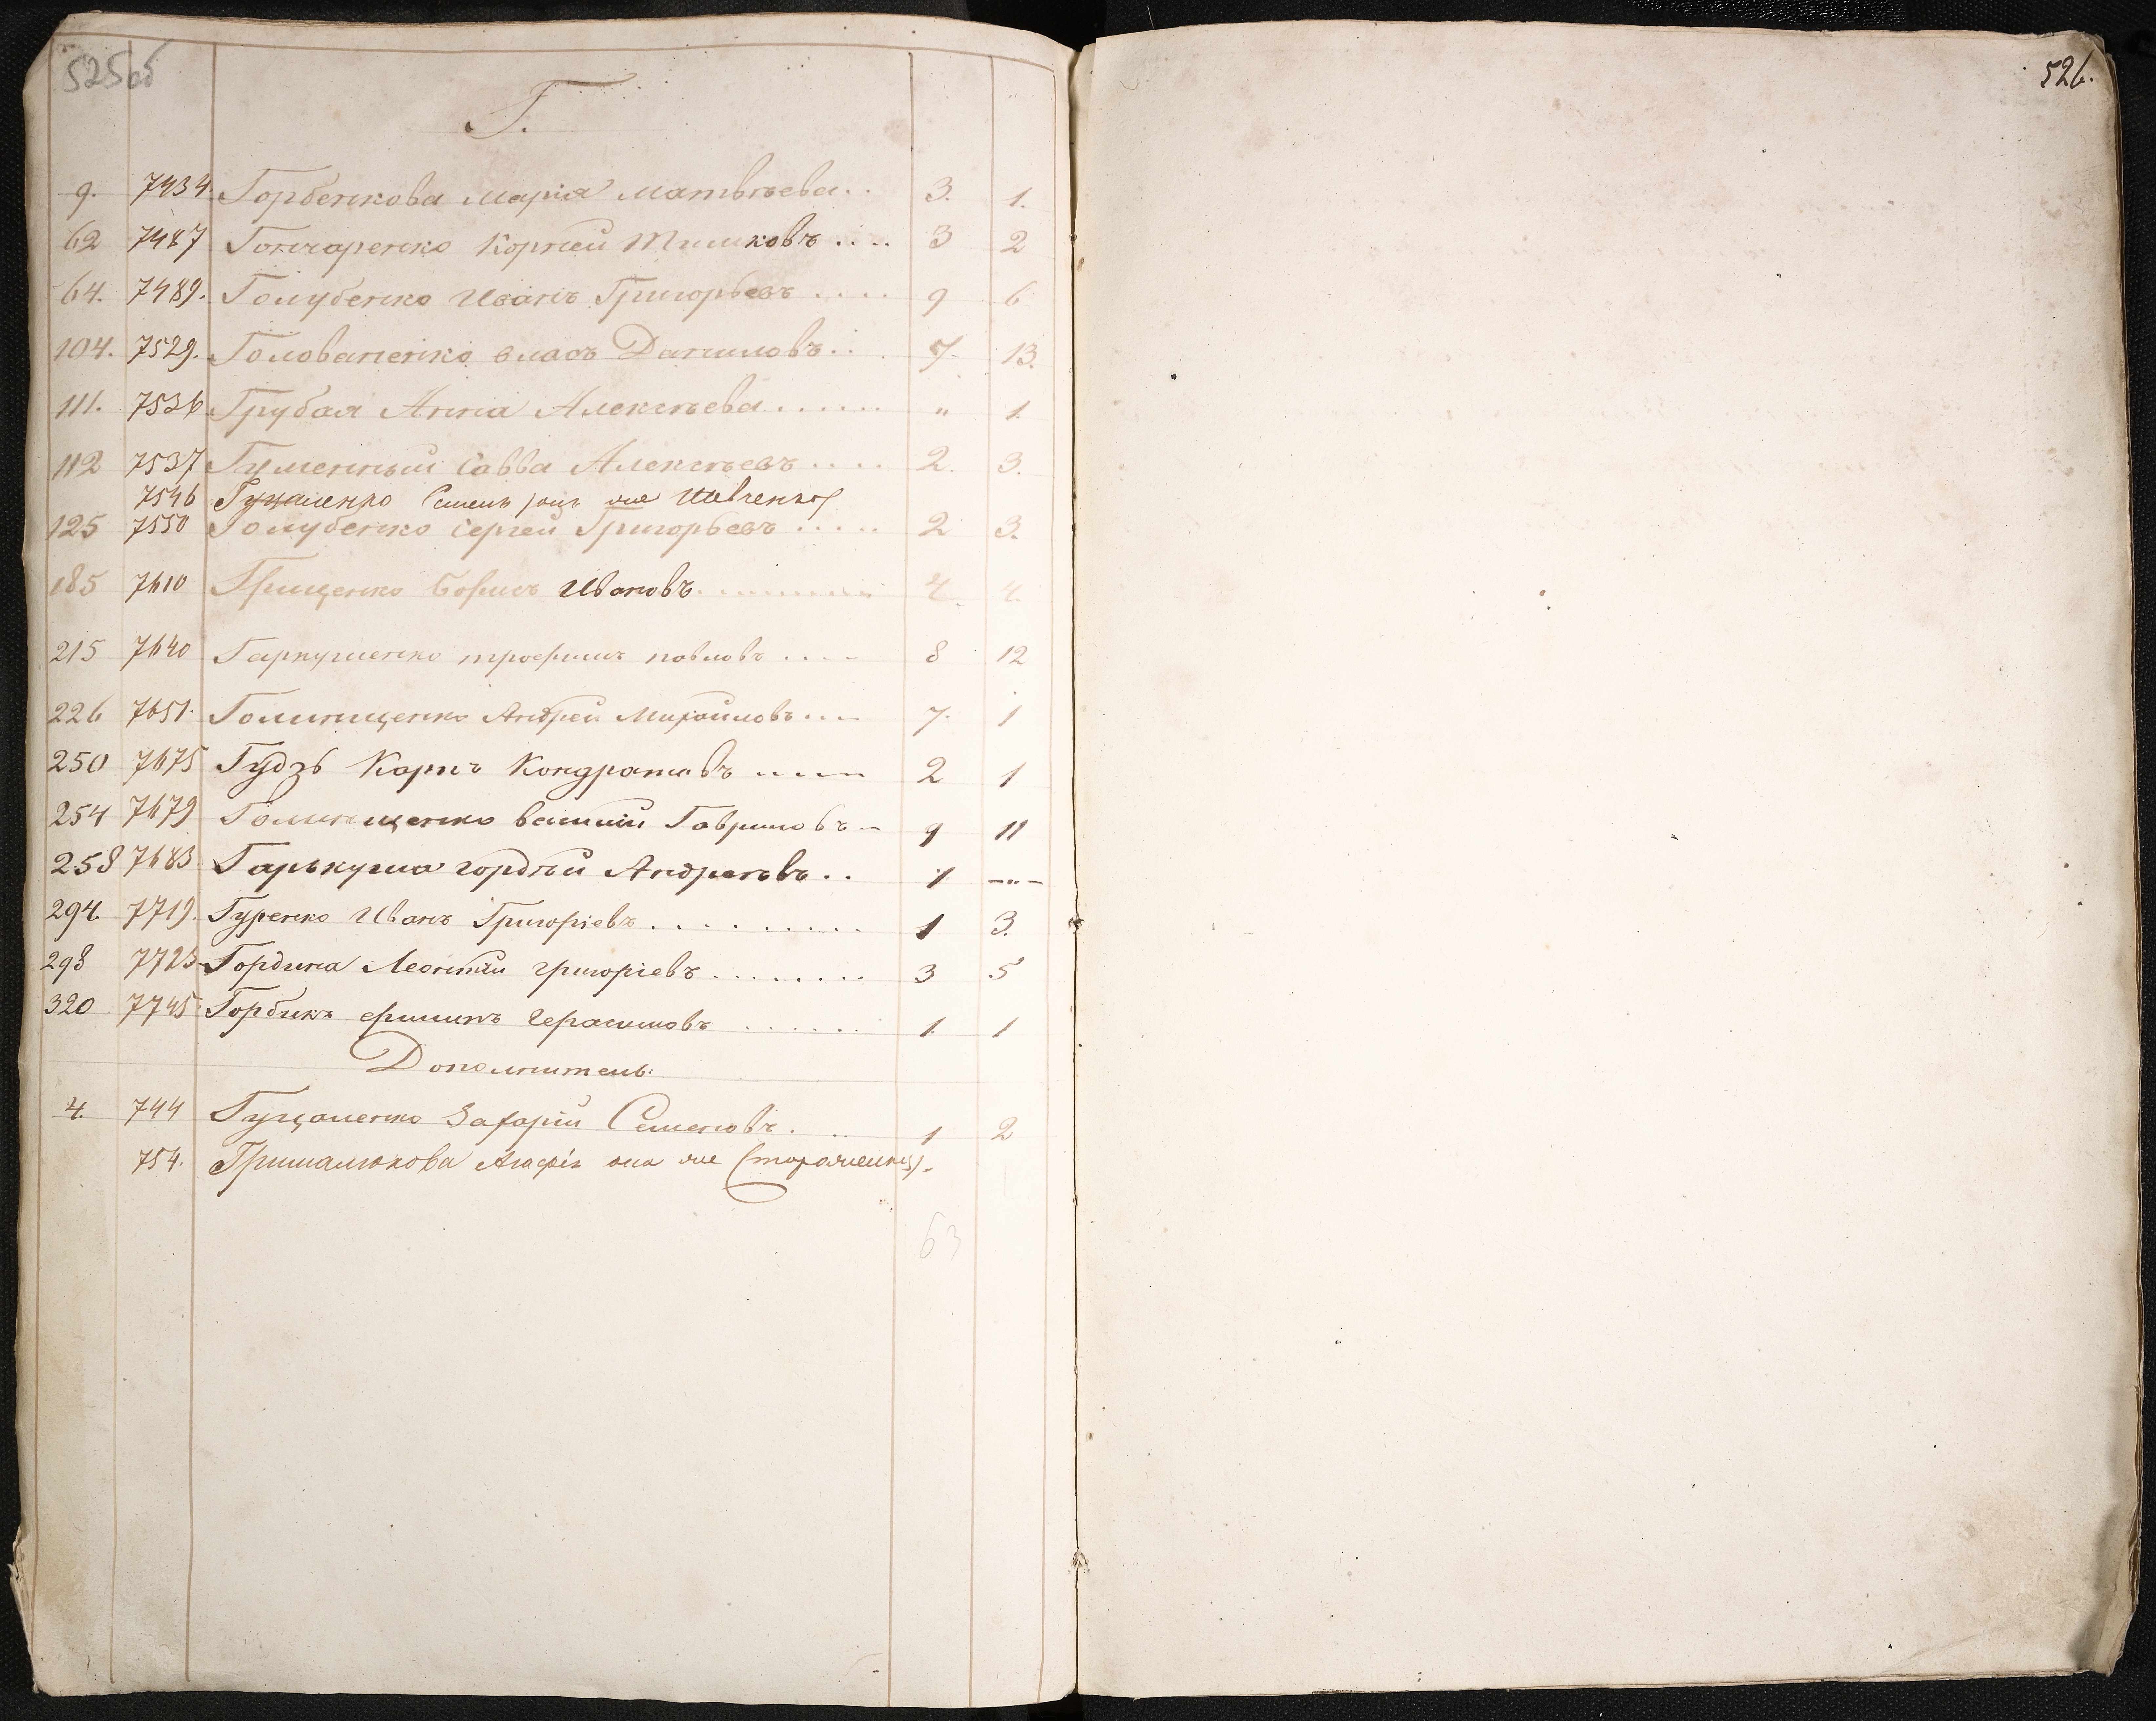 525об
526.
Г.
9. 7434. Горбенкова Марія Матвѣева.. 3. 1.
62 7487 Гончаренко Корней Тимковъ.... 3 2
64. 7489. Голубенко Иванъ Григорьевъ.... 9 6
104. 7529. Голованенко Власъ Даниловъ... 7. 13.
111. 7536 Грубая Анна Алексѣева...... „ 1.
112 7537 Гуменный Савва Алексѣевъ.... 2. 3.
7546 Гуцаленко Семенъ (онъ же Шевченко)
125 7550 Голубенко Сергей Григорьевъ..... 2 3.
185 7610 Грищенко Борисъ Ивановъ......... 4. 4.
215 7640 Гаркушенко трофимъ павловъ.... 8 12
226 7651. Голинищенко Андрей Михайловъ.... 7. 1
250 7675 Гудзь Карпъ Кондратовъ..... 2 1
254 7679 Голинищенко василій Гавриловъ - 9 11
258 7683 Гарькуша гордѣй Андреевъ.. 1 -„-
294. 7719. Гуренко Иванъ Григоріевъ......... 1 3.
298 7723 Гордина Леонтій григоріевъ........ 3 5
320 7745 Горбикъ филипъ Герасимовъ...... 1. 1
Дополнитель:
4. 744 Гуцаленко Захарій Семеновъ. 1 2
754. Агафія она же
63